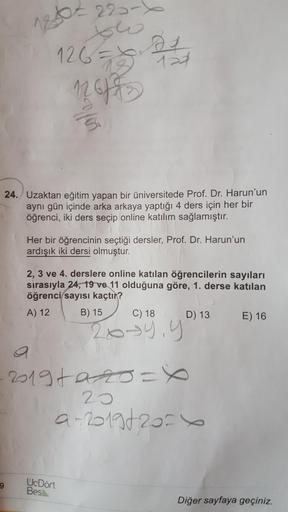 126 = x.
24. Uzaktan eğitim yapan bir üniversitede Prof. Dr. Harun'un
aynı gün içinde arka arkaya yaptığı 4 ders için her bir
öğrenci, iki ders seçip online katılım sağlamıştır.
Her bir öğrencinin seçtiği dersler, Prof. Dr. Harun'un
ardışık iki dersi olmuştur.
2, 3 ve 4. derslere online katılan öğrencilerin sayıları
sırasıyla 24, 19 ve 11 olduğuna göre, 1. derse katılan
öğrenci sayısı kaçtır?
A) 12 B) 15 C) 18 D) 13 E) 16
a
20
a-2019+20=x
9
ÜçDört
Beş
Diğer sayfaya geçiniz.